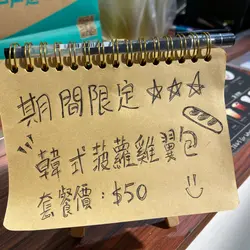 期間限定☆☆☆
韓式菠蘿雞翼包
套餐價：$50